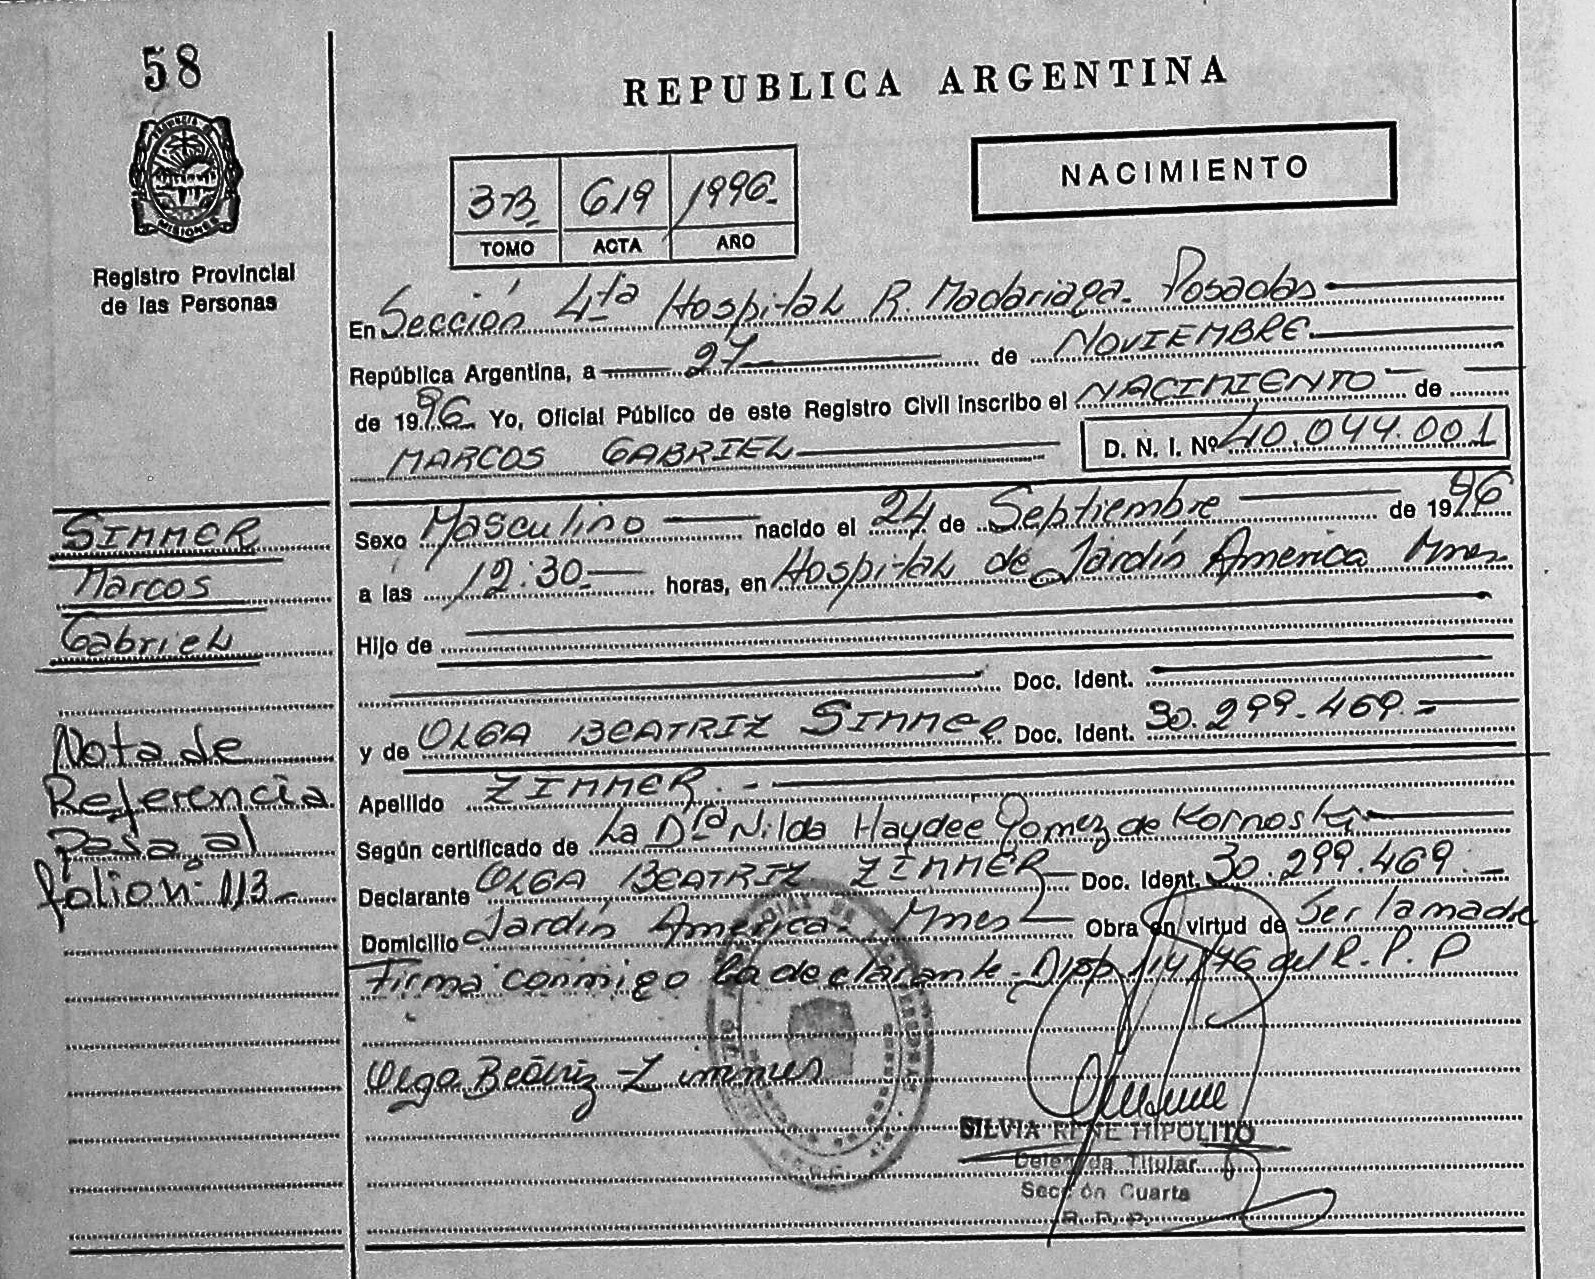 58
REPUBLICA ARGENTINA
NACIMIENTO
373 619 1996.
TOMO ACTA AÑO
MISIONES
Registro Provincial
de las Personas
En Sección 4ta Hospital R. Madariaga. Posadas
República Argentina, a 27 de NOVIEMBRE
de 1996 Yo, Oficial Público de este Registro Civil inscribo el NACIMIENTO de
MARCOS GABRIEL D. N. I. Nº 40.044.001
SIMMER
Marcos
Gabriel
Sexo Masculino nacido el 24 de Septiembre de 1996
a las 12:30 horas, en Hospital de Jardín America Mnes.
Hijo de
Doc. Ident.
y de OLGA BEATRIZ SIMMER Doc. Ident. 30.299.469.=
Apellido ZIMMER.-
Según certificado de La Dra Nilda Haydee Gomez de Kornoski
Declarante OLGA BEATRIZ ZIMMER Doc. Ident. 30.299.469.-
Domicilio Jardín America. Mnes Obra en virtud de Ser la madre
Firma conmigo la declarante. Disp. 114/46 del R. P. P
Nota de
Referencia
Pasa al
folio nº 113-
Olga Beatriz Zimmer
SILVIA RENE HIPOLITO
Delegada Titular
Sección Cuarta
R. P. P.